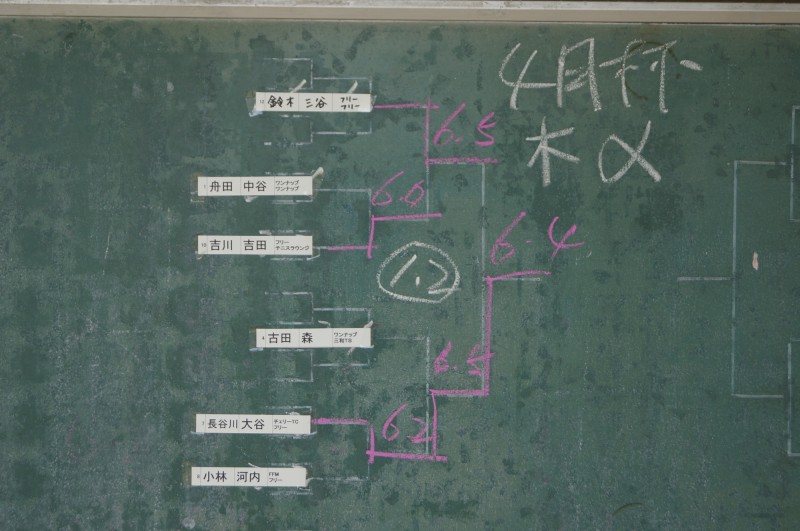 4月杯
木 α
鈴木 三谷 フリー フリー
6.5
舟田 中谷 ワンナップ ワンナップ
6.0
吉川 吉田 フリー テニスラウンジ
6.4
1.2
古田 森 ワンナップ 三和TB
6.5
長谷川 大谷 チェリーTC フリー
62
小林 河内 FFM フリー